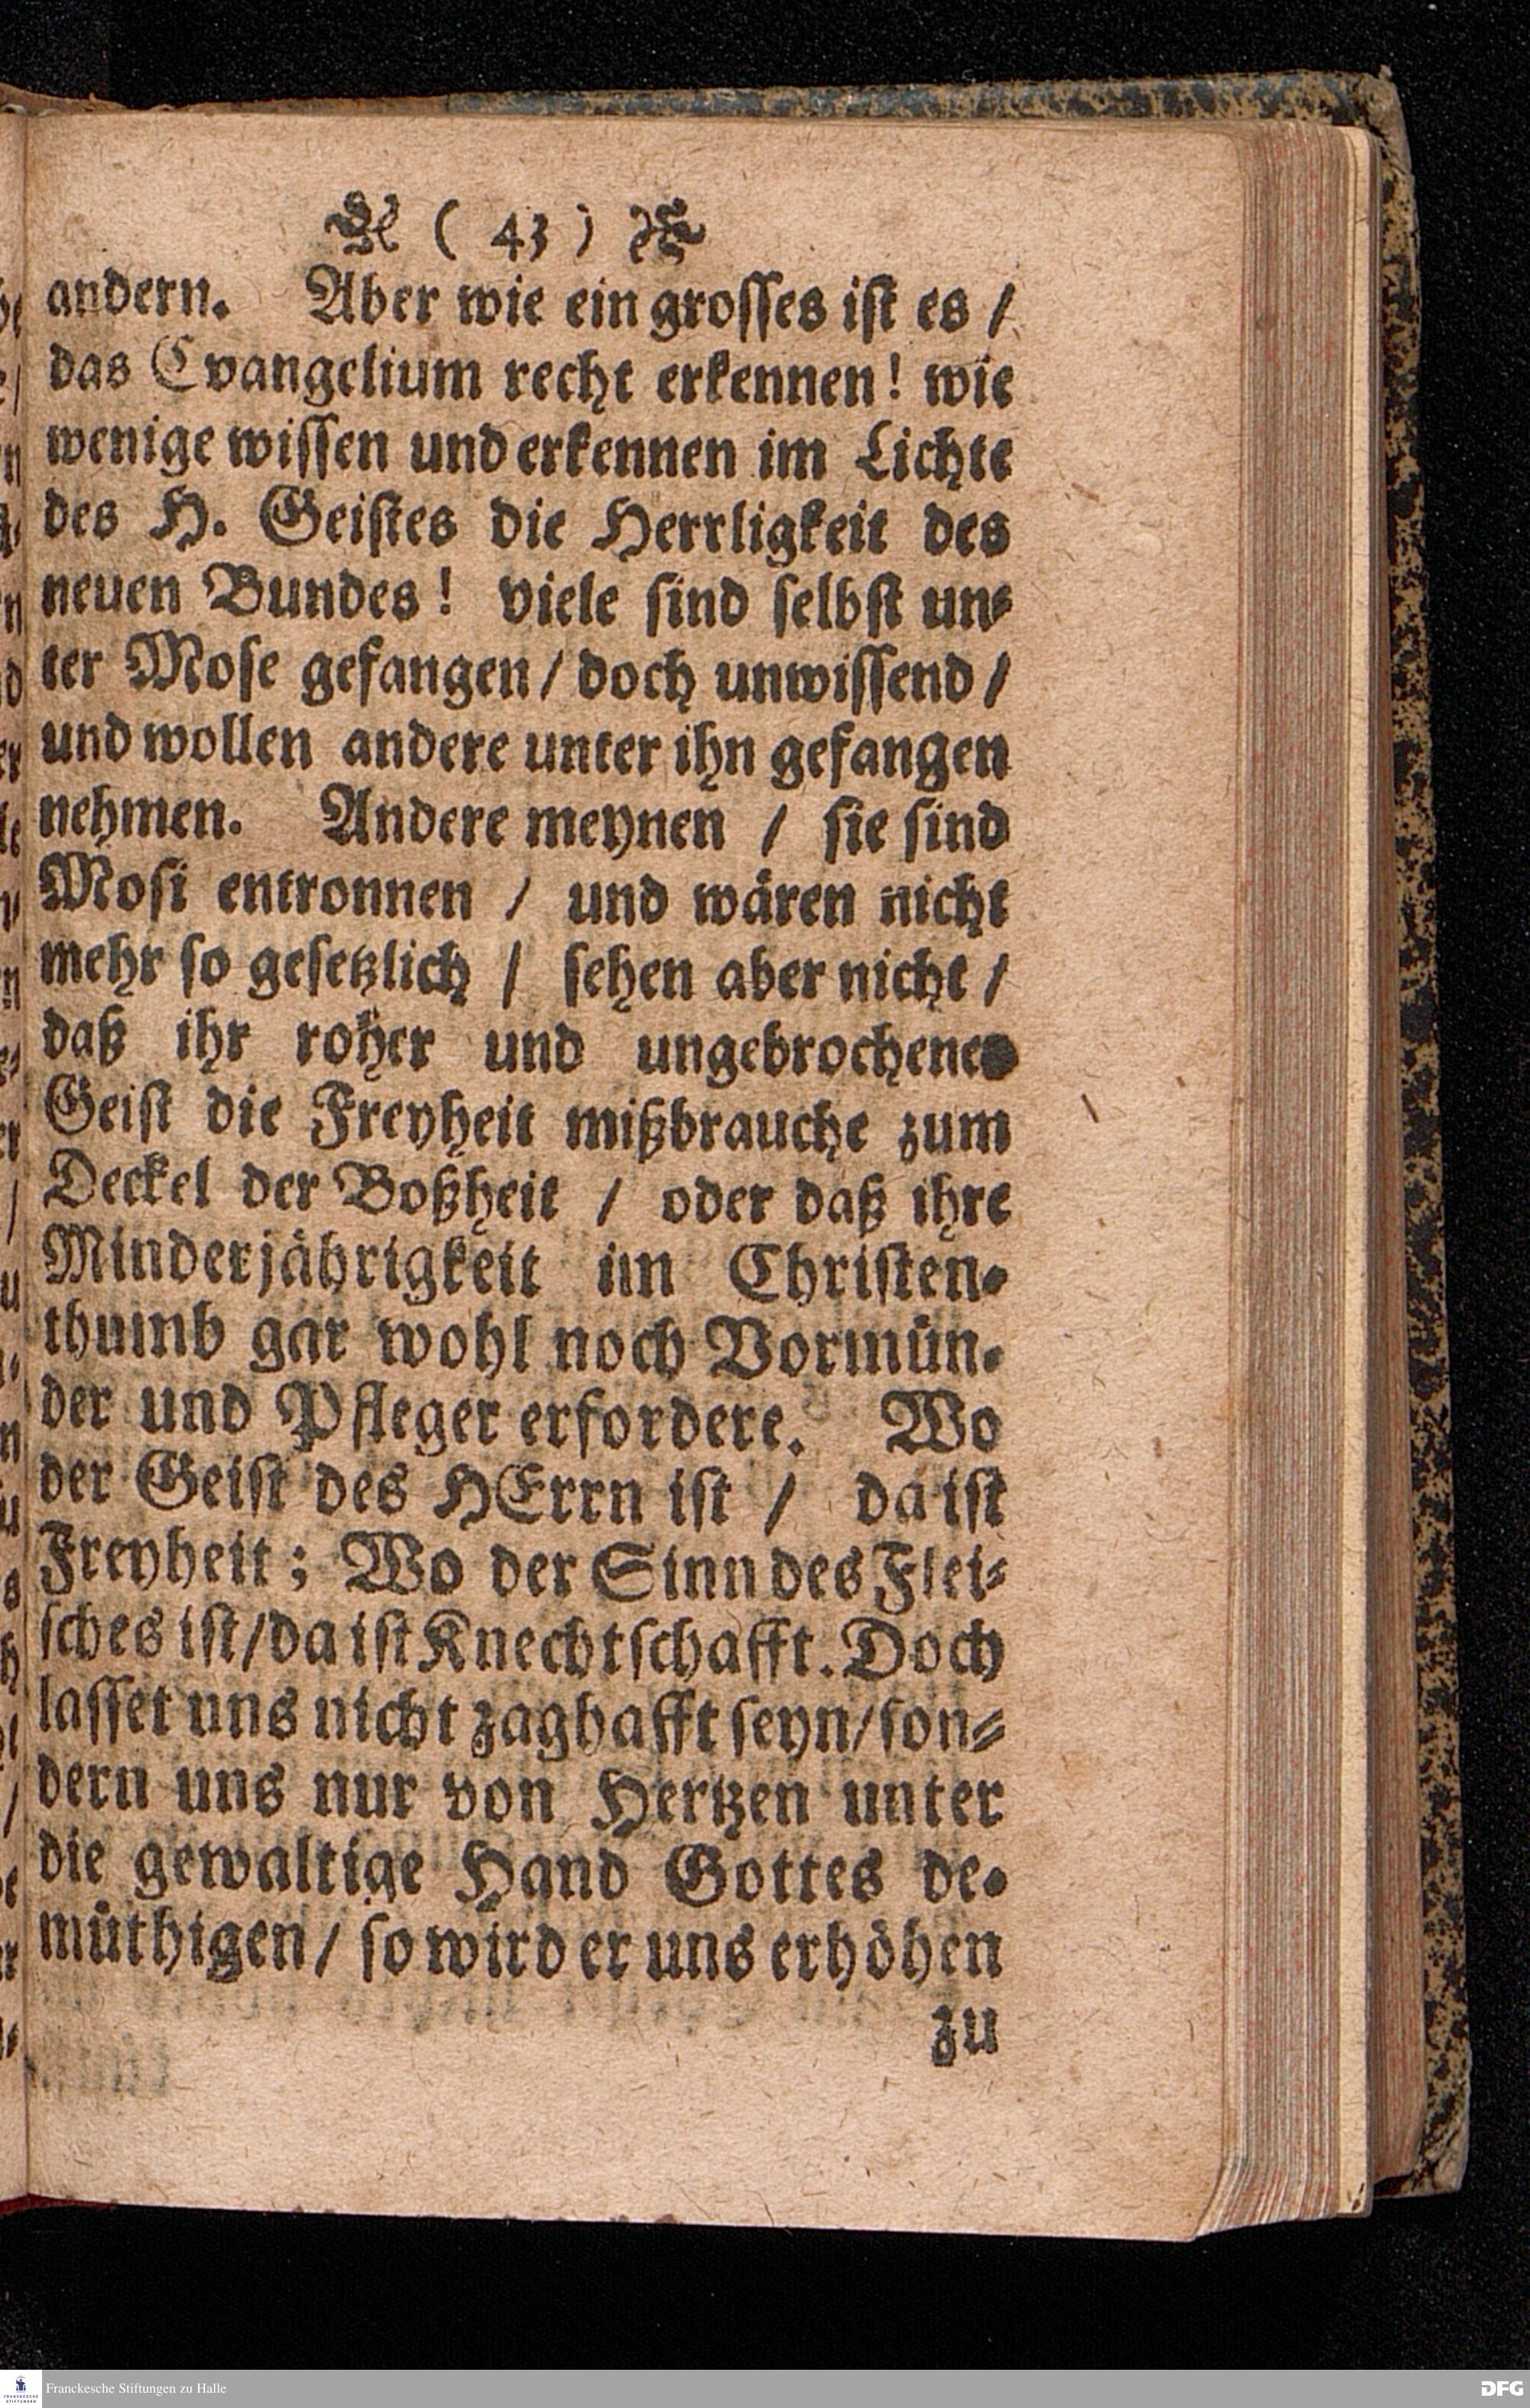 ( 43 )
andern. Aber wie ein grosses ist es /
das Evangelium recht erkennen! wie
wenige wissen und erkennen im Lichte
des H. Geistes die Herrligkeit des
neuen Bundes! viele sind selbst un-
ter Mose gefangen / doch unwissend /
und wollen andere unter ihn gefangen
nehmen. Andere meynen / sie sind
Mosi entronnen / und wären nicht
mehr so gesetzlich / sehen aber nicht /
daß ihr roher und ungebrochener
Geist die Freyheit mißbrauche zum
Deckel der Boßheit / oder daß ihre
Minderjährigkeit im Christen-
thumb gar wohl noch Vormün-
der und Pfleger erfordere. Wo
der Geist des HErrn ist / da ist
Freyheit; Wo der Sinn des Flei-
sches ist / da ist Knechtschafft. Doch
lasset uns nicht zaghafft seyn / son-
dern uns nur von Hertzen unter
die gewaltige Hand Gottes de-
müthigen / so wird er uns erhöhen
zu
Franckesche Stiftungen zu Halle
DFG